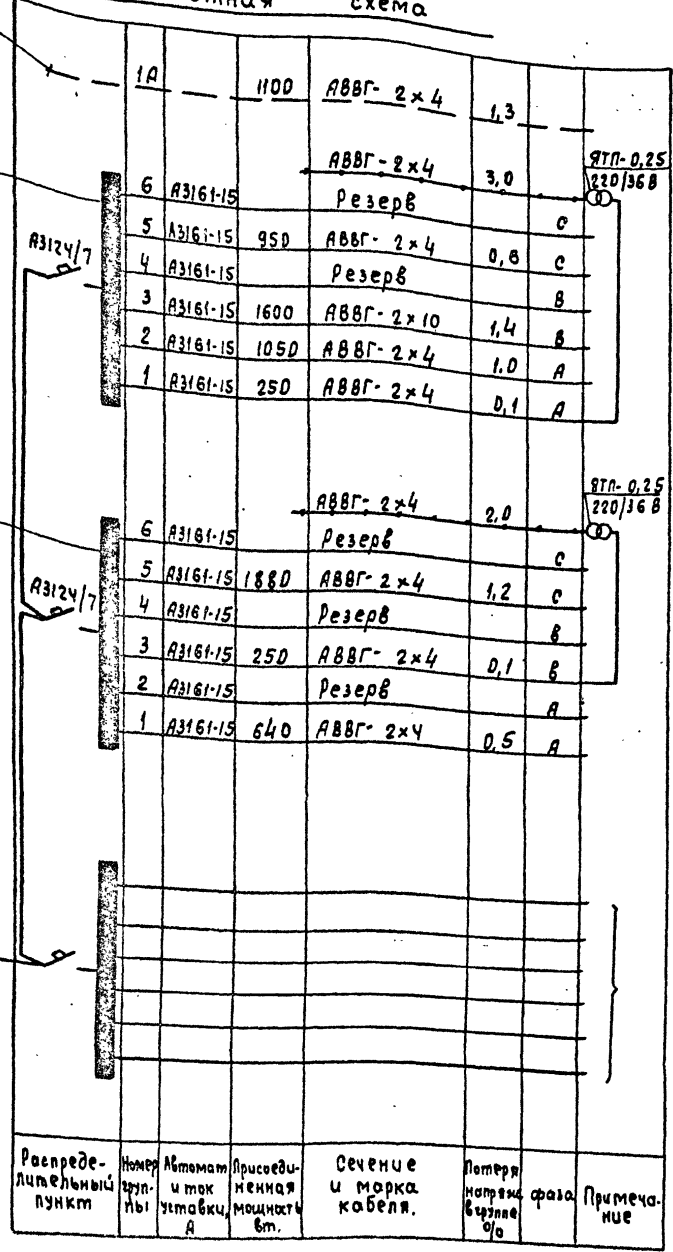 схема
1А 1100 АВВГ- 2×4 1,3
АВВГ- 2×4 3,0 ЯТП- 0,25
220/36 В
6 А3161-15 Резерв С
А3124/7
5 А3161-15 950 АВВГ- 2×4 0,8 С
4 А3161-15 Резерв В
3 А3161-15 1600 АВВГ- 2×10 1,4 В
2 А3161-15 1050 АВВГ- 2×4 1.0 А
1 А3161-15 250 АВВГ- 2×4 0,1 А
АВВГ- 2×4 2,0 ЯТП- 0,25
220/36 В
6 А3161-15 Резерв С
А3124/7
5 А3161-15 1880 АВВГ- 2×4 1,2 С
4 А3161-15 Резерв В
3 А3161-15 250 АВВГ- 2×4 0,1 В
2 А3161-15 Резерв А
1 А3161-15 640 АВВГ- 2×4 0,5 А
Распреде-
лительный
пункт
Номер
груп-
пы
Автомат
и ток
уставки,
А
Присоеди-
ненная
мощность
вт.
Сечение
и марка
кабеля.
Потеря
напряж
в группе
%
фаза
Примеча-
ние